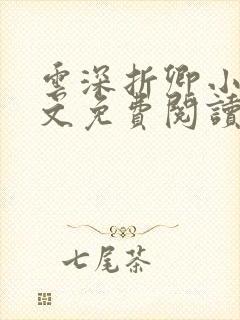 雲深折卿小
文免費閱讀
七尾茶